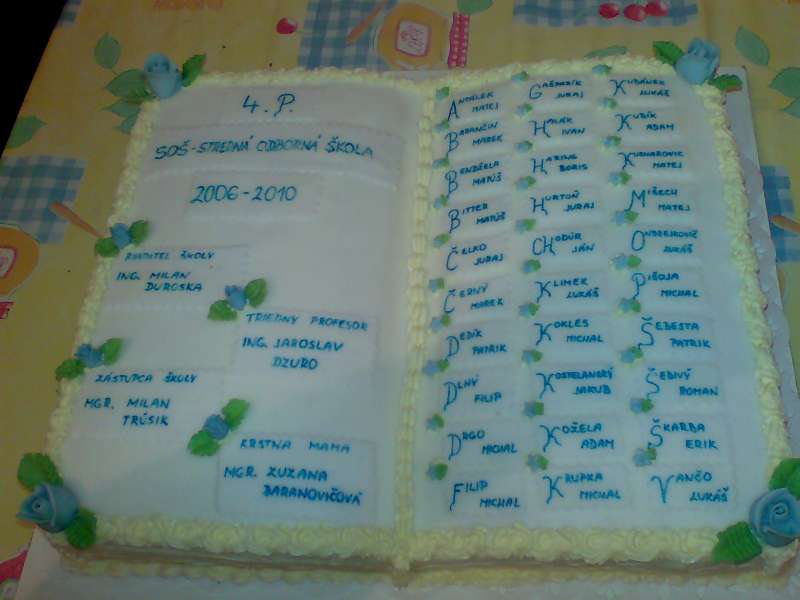 4. P.
SOŠ-STREDNÁ ODBORNÁ ŠKOLA
2006-2010
RIADITEĽ ŠKOLY
ING. MILAN
DUROSKA
TRIEDNY PROFESOR
ING. JAROSLAV
DZURO
ZÁSTUPCA ŠKOLY
MGR. MILAN
TRÚSIK
KRSTNÁ MAMA
MGR. ZUZANA
BARANOVIČOVÁ
ANTÁLEK
MATEJ
BARANČIN
MAREK
BENDŽELA
MATÚŠ
BITTER
MATÚŠ
ČELKO
JURAJ
ČERNÝ
MAREK
DEDÍK
PATRIK
DLHÝ
FILIP
DRGO
MICHAL
FILIP
MICHAL
GAŠPARÍK
JURAJ
HALÁK
IVAN
HARING
BORIS
HURTOŇ
JURAJ
CHODÚR
JÁN
KLIMEK
LUKÁŠ
KOKLES
MICHAL
KOSTELANSKÝ
JAKUB
KOŽELA
ADAM
KRUPKA
MICHAL
KUBÁNEK
LUKÁŠ
KUBÍK
ADAM
MATEJ
MIŠECH
MATEJ
ONDREJKOVIČ
LUKÁŠ
PIŠOJA
MICHAL
ŠEBESTA
PATRIK
ŠEDIVÝ
ROMAN
ŠKARBA
ERIK
VANČO
LUKÁŠ